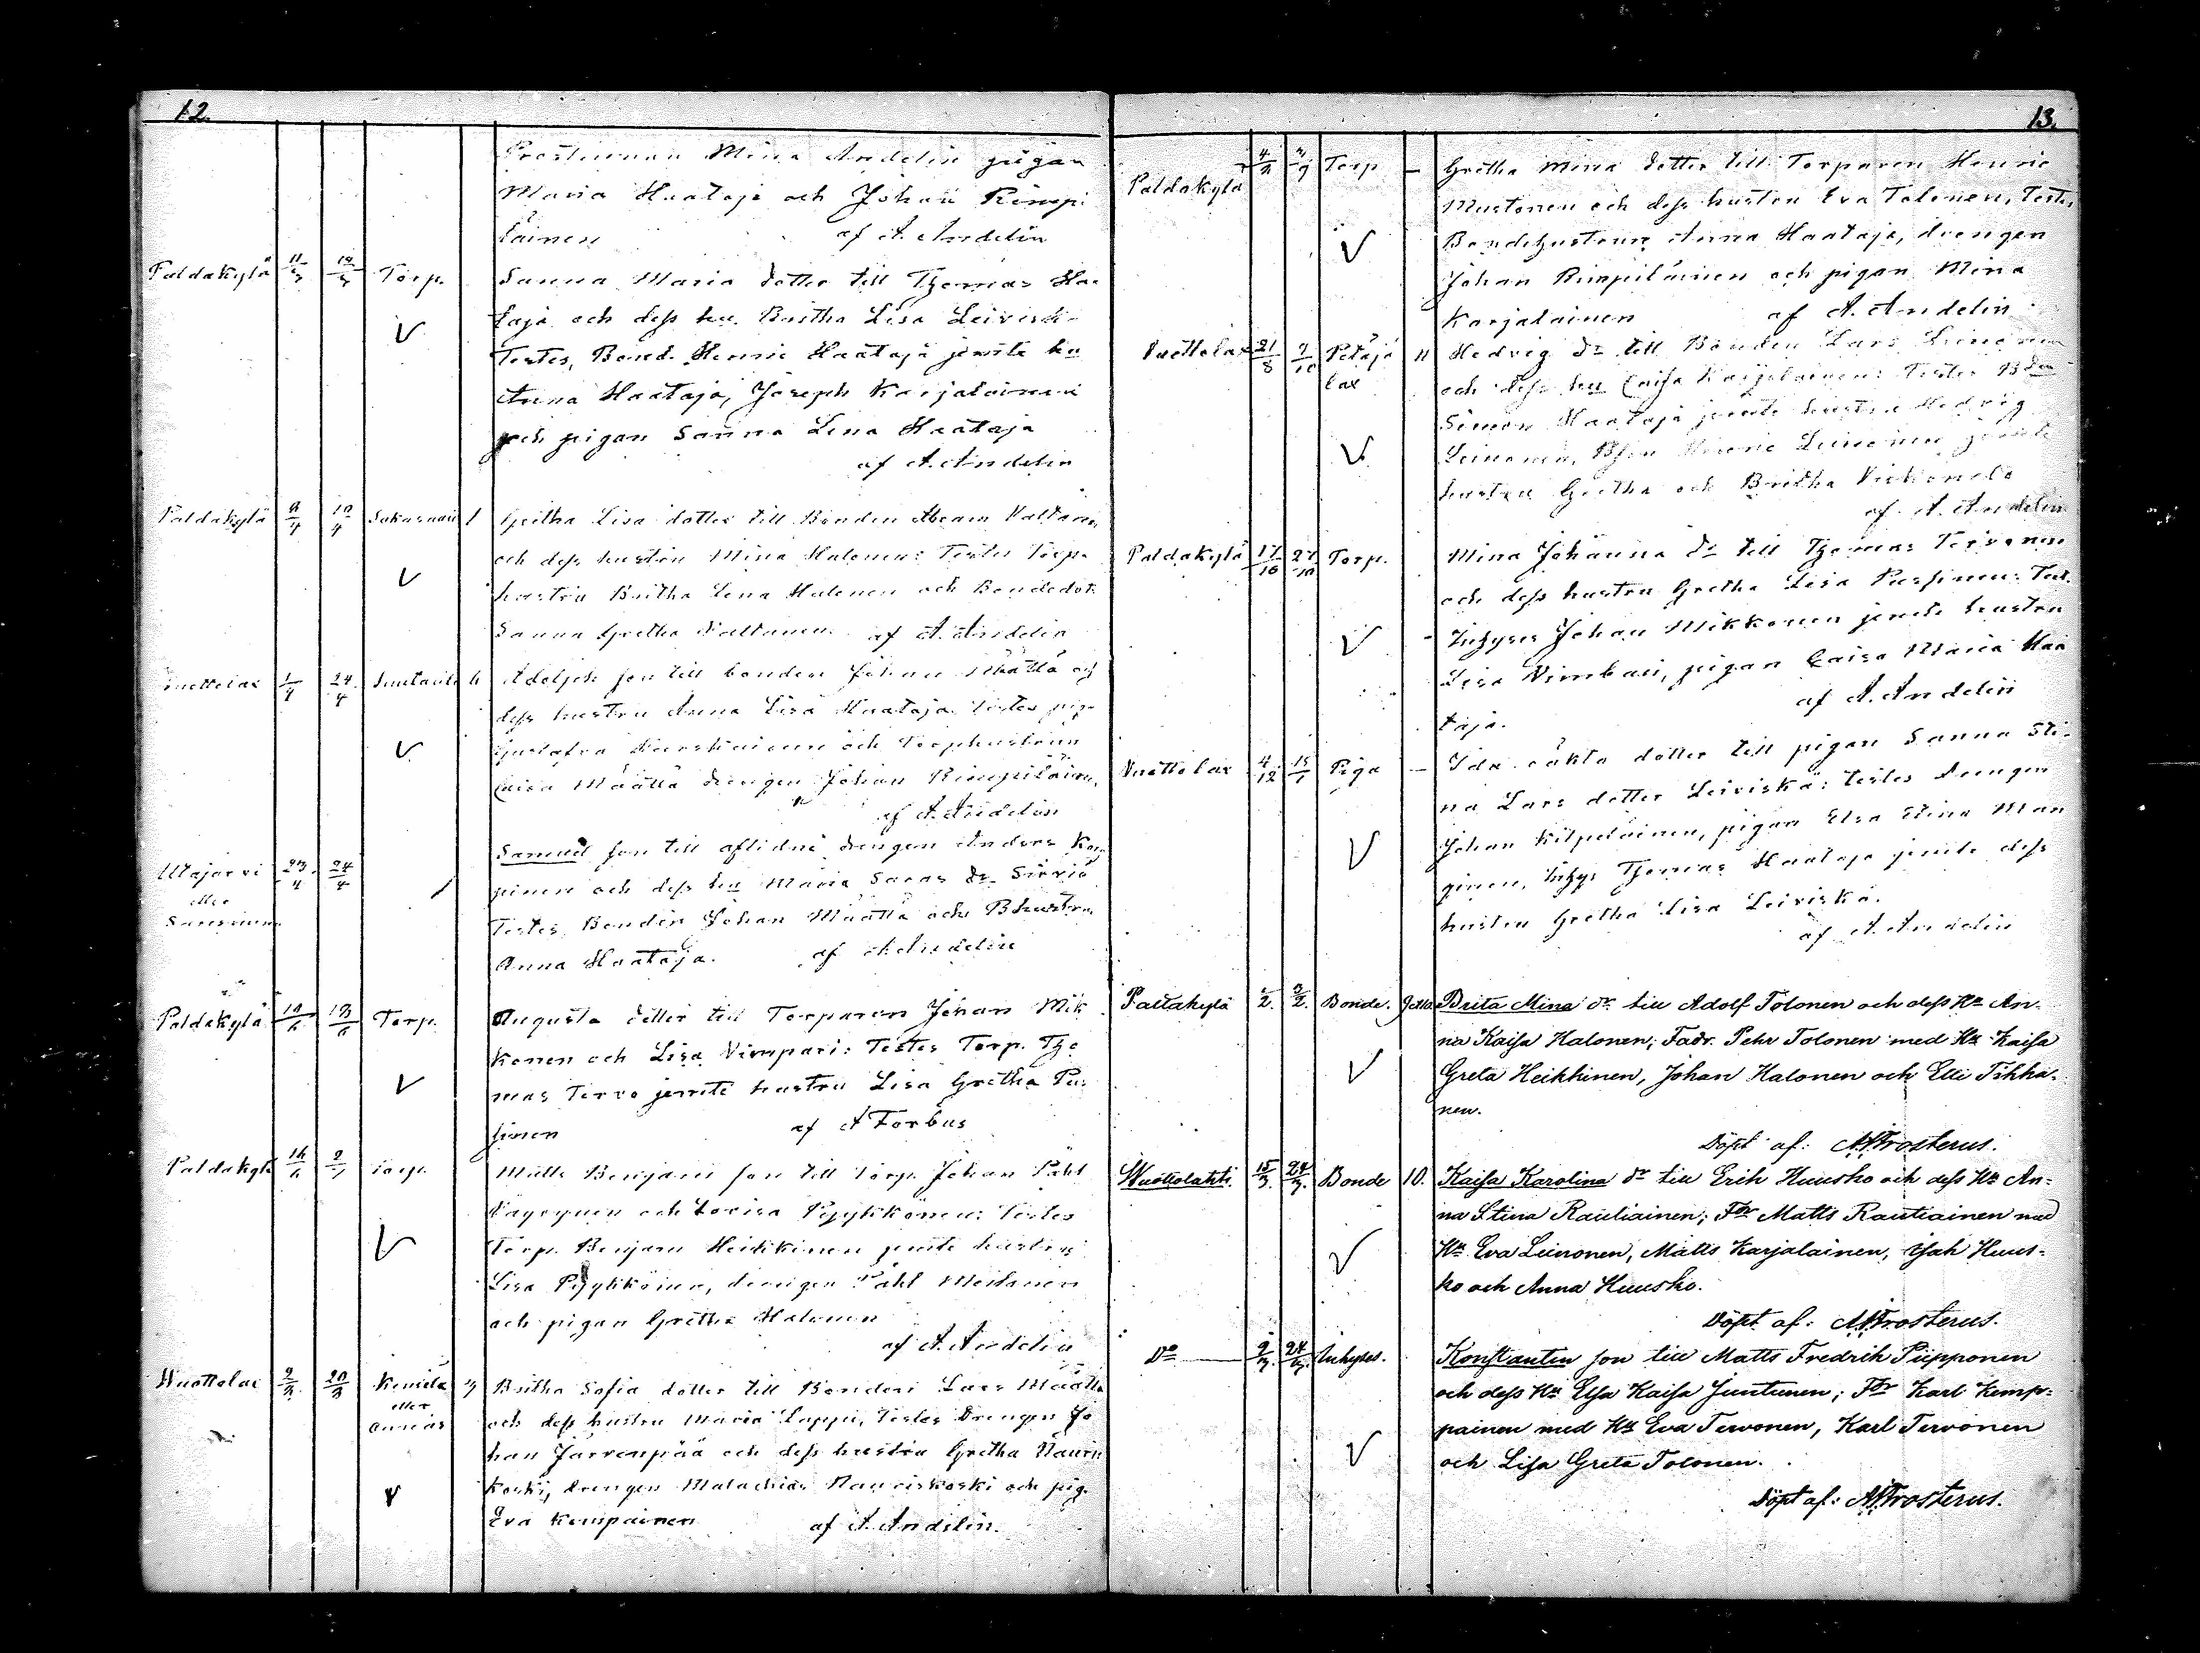 12.
Prostinnan Mina Andelin pigan
Maria Haataja och Johan Rimpi
läinen af A. Andelin
Paldakylä 11/3 12/3 Torp. Sanna Maria dotter till Thomas Haa
taja och dess hu. Britha Lisa Leiviskä
Testes, Bond. Henric Haataja jemte hu
Anna Haataja, Joseph Karjalainen
och pigan Sanna Lena Haataja
af A. Andelin
Paldakylä 10/4 1 Gretha Lisa dotter till Bonden Abram Valtanen
och dess hustru Mina Halonen: Testes Torp.
hustru Britha Lena Halonen och Bondedot.
Sanna Gretha Valtanen. af A. Andelin
24/4 Adolph son till bonden Johan Määttä och
dess hustru Anna Lisa Haataja. Testes pig.
Gustafva och Torphustrun
Caisa Määttä drengen Johan Rimpiläinen,
af A. Andelin
Utajärvi 23/4 24/4 Samuel son till aflidne drengen Andras Kem
eller
pinen och dess hu Maria Saras dr Sirviö
Testes Bonden Johan Määttä och Bhustru
Anna Haataja. af A. Andelin
Paldakylä 10/6 13/6 Torp. Augusta dotter till Torparen Johan Mik
konen och Lisa Vimpari: Testes Torp. Tho
mas Tervo jemte hustru Lisa Gretha Pus
sinen af A Forbus
Paldakylä Torp. Matts Benjam son till Torp. Johan Påhl
och Lovisa Pyykkönen: Testes
Torp. Benjam Heikkinen jemte hustru
Lisa Pyykkönen, drengen Påhl Moilanen
och pigan Gretha Halonen
af A. Andelin
Wuottolax 20/8 Britha Sofia dotter till Bonden Lars Määttä
eller
och dess hustru Maria Lappi, Testes Drengen Jo
han Järvenpää och dess hustru Gretha Nauris
koski, drengen Malachias Nauriskoski och pig.
Eva Kempainen af A. Andelin.
13.
Paldakylä Torp — Gretha Mina dotter till Torparen Henric
Mustonen och dess hustru Eva Tolonen, Testes,
Bondehustrun Anna Haataja, drengen
Johan Rimpiläinen och pigan Mina
Karjalainen af A. Andelin
Vuottolax 21/8 7/10 Petäjä 11 Hedvig dr till Bonden Lars Leinonen
lax
och dess hu Caisa Karjalainen: Testes Bdn
Simon Haataja jemte hustru Hedvig
Leinonen, Bson Henric Leinonen jemte
hustru Gretha och Britha
af A. Andelin
Paldakylä 17/10 27/10 Torp. Mina Johanna dr till Thomas Tervonen
och dess hustru Gretha Lisa Pussinen: Test.
Inhyses Johan Mikkonen jemte hustru
Lisa Vimbari, pigan Caisa Maria Haa
taja. af A. Andelin
Vuottolax 4/12 15/1 Piga — Ida oäkta dotter till pigan Sanna Sti-
na Lars dotter Leiviskä: testes drengen
Johan Kilpeläinen, pigan Elsa Stina Man
ginen, Inhys Thomas Haataja jemte dess
hustru Gretha Lisa Leiviskä.
af A. Andelin
Paltakylä 1/2. 3/2. Bonde. Brita Mina dr till Adolf Tolonen och dess Hu An-
na Kaisa Halonen; Fadr. Pehr Tolonen med Hu Kaisa
Greta Heikkinen, Johan Halonen och Elli Tikka-
nen.
Döpt af: Frosterus.
Wuottolahti. 15/3. 24/3. Bonde 10. Kaisa Karolina dr till Erik Huusko och dess Hu An-
na Stina Rautiainen; Fdr Matts Rautiainen med
Hu Eva Leinonen, Matts Karjalainen, Isak Huus-
ko och Anna Huusko.
Döpt af: Frosterus.
Do 9/3. 24/3. Inhyses. Konstantin son till Matts Fredrik Piipponen
och dess Hu Elsa Kaisa Juntunen; Fdr Karl Kemp-
painen med Hu Eva Tervonen, Karl Tervonen
och Lisa Greta Tolonen.
Döpt af: Frosterus.